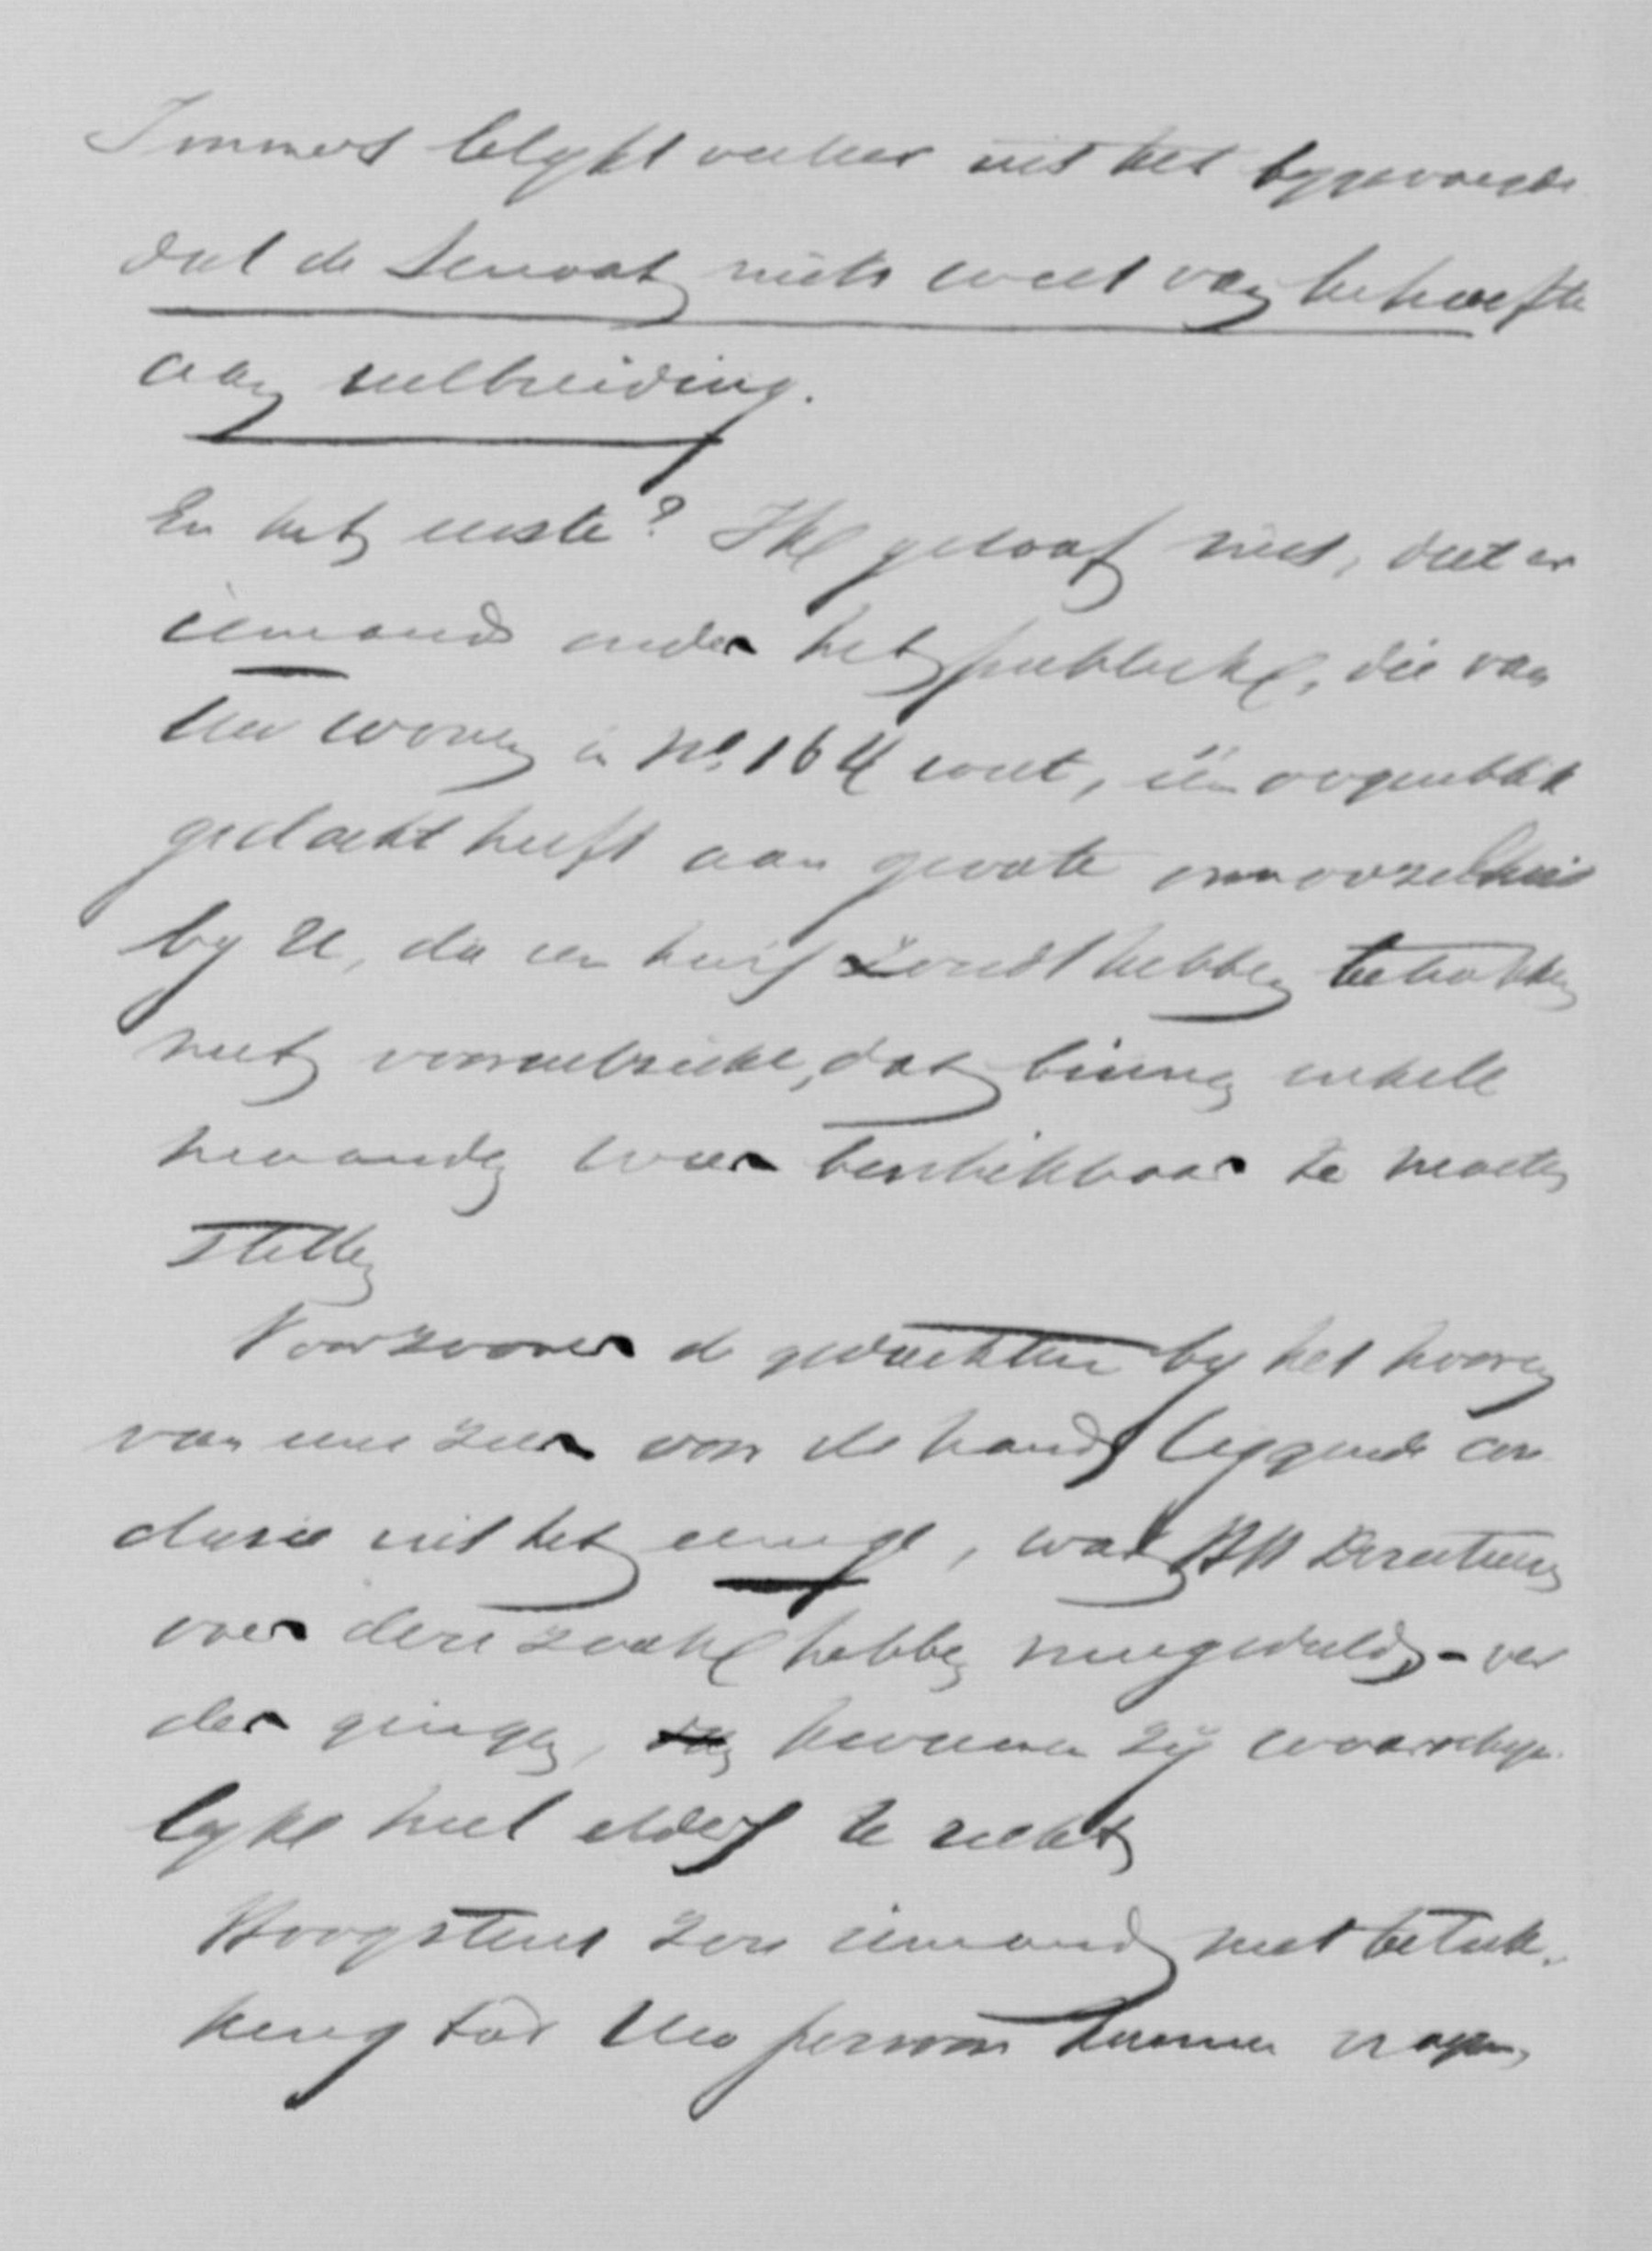 Immers blykt zeker uit het bygevoegde
dat de Senaat niets weet van behoefte
aan uitbreiding.
En het eerste? Ik geloof niet, dat er
iemand onder het publiek, die van
Uw wonen in No. 164 weet, één oogenblik
gedacht heeft aan groote onnoozelheid
by U, die een huis zoudt hebben betrokken
met vooruitzicht, dat binnen enkele
maanden weer beschikbaar te moeten
stellen
Voorzoover de gedachten by het hooren
van eene zeer voor de hand liggende con
clusie uit het eenige, wat HH Directeuren
over deze zaak hebben meegedeeld, - ver
der gingen, kwamen zij waarschyn
lyk heel elders te recht
Hoogstens zou iemand met betrek-
king tot Uw persoon kunnen vragen,